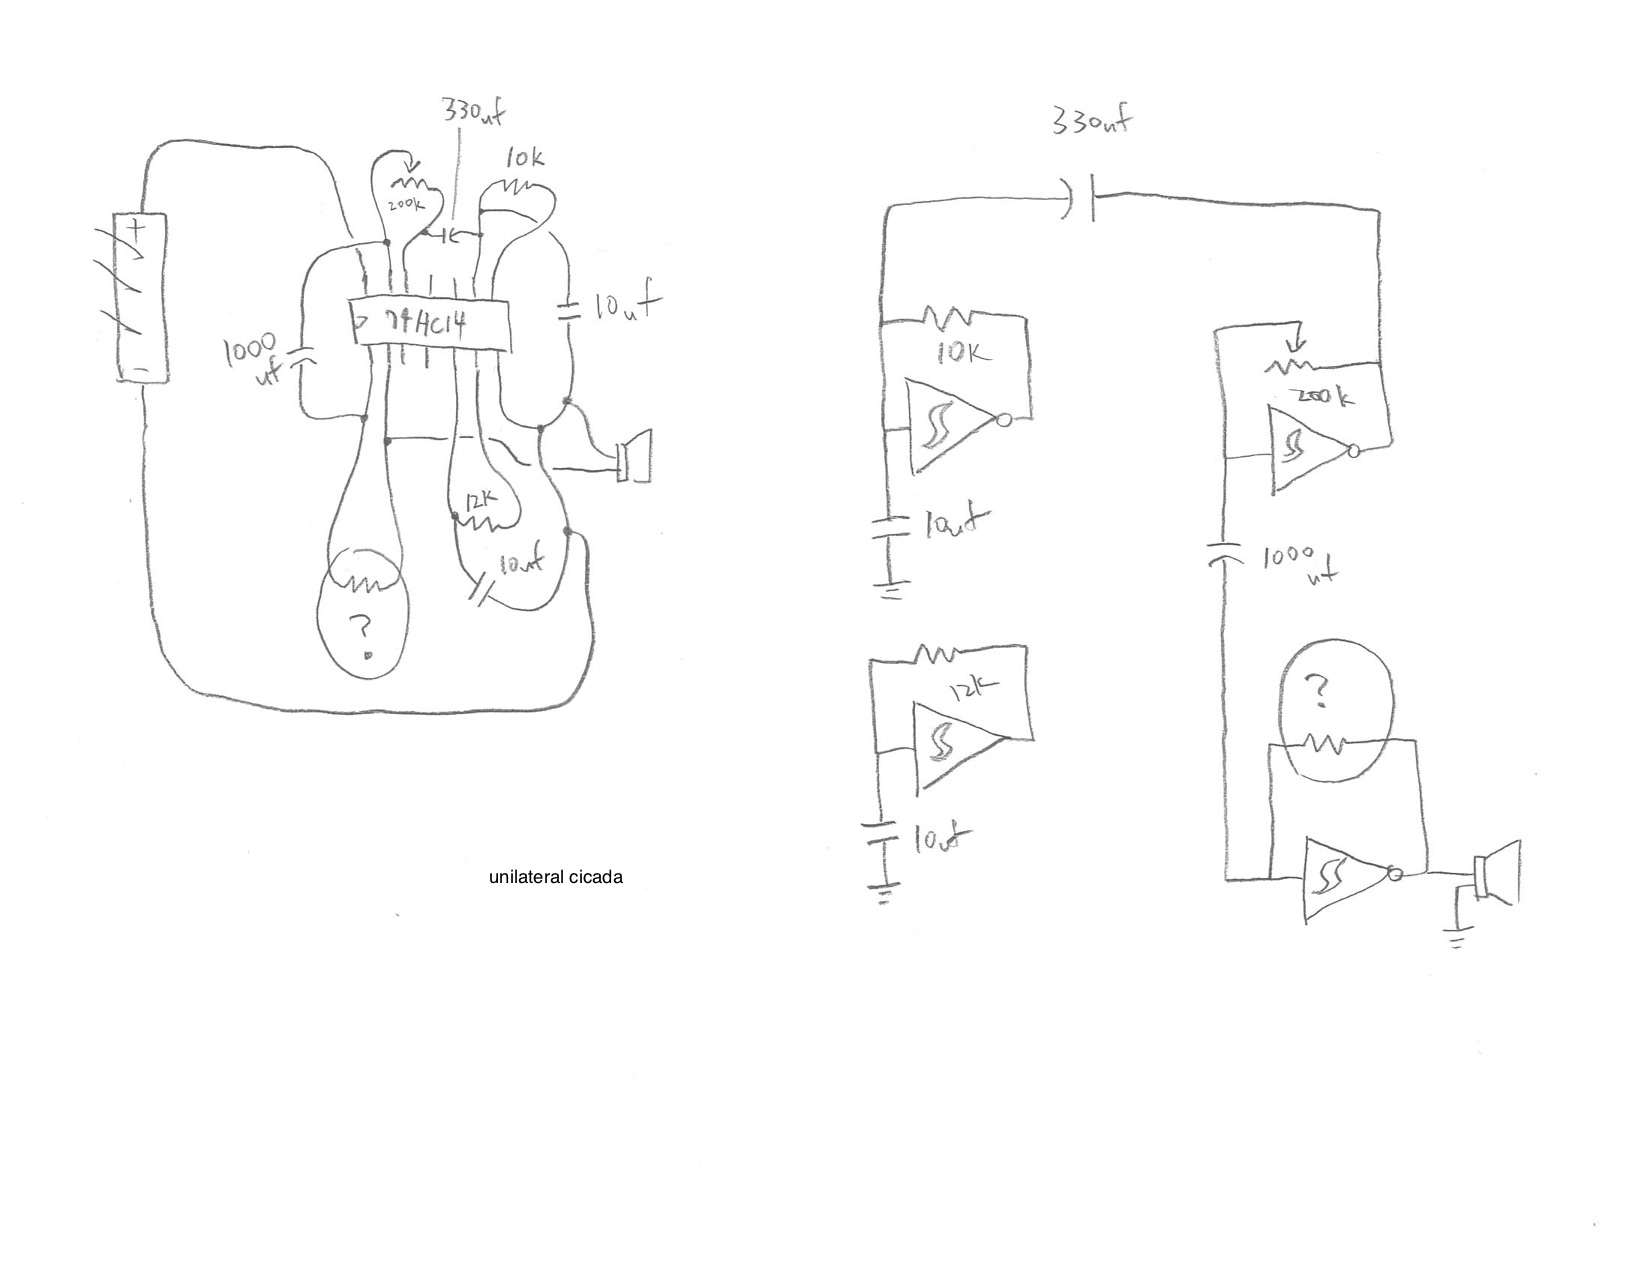 330uf
10k
200k
+
74HC14
10uf
1000
uf
-
12k
10uf
?
unilateral cicada
330uf
10k
200k
10uf
1000
uf
12k
?
10uf